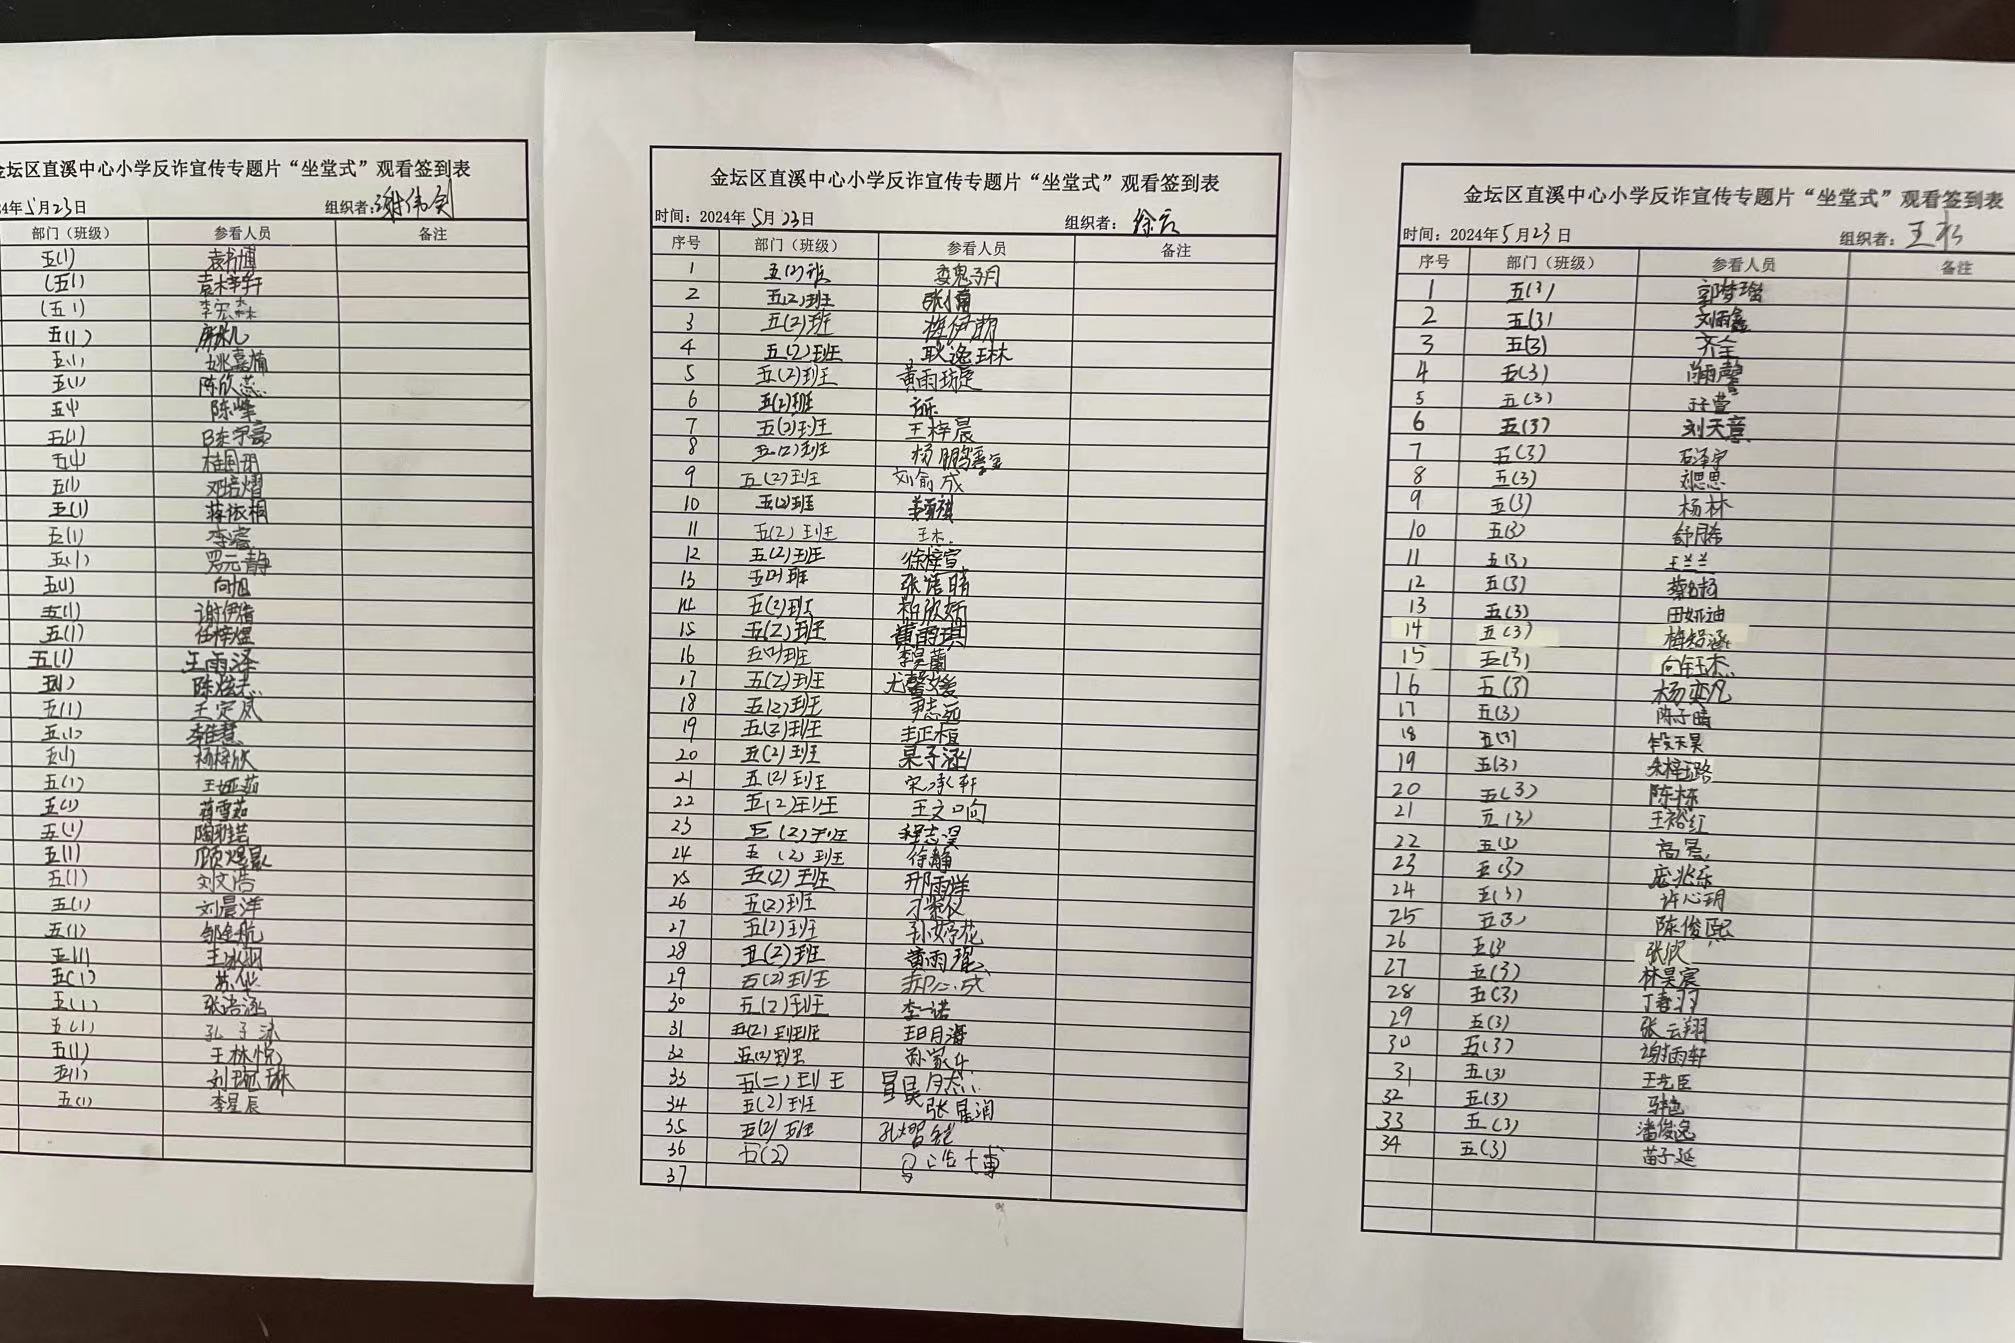 金坛区直溪中心小学反诈宣传专题片“坐堂式”观看签到表
24年5月23日 组织者:谢伟剑
部门（班级） 参看人员 备注
五(1) 袁书博
(五1) 袁梓轩
(五1) 李宏森
五(1)
五(1) 姚嘉楠
五(1) 陈欣蕊
五(1) 陈峰
五(1) 陈宇豪
五(1) 桂国玥
五(1) 邓培熠
五(1) 蒋依桐
五(1) 李睿
五(1) 罗元静
五(1) 向旭
五(1) 谢伊蓓
五(1) 任梓煜
五(1) 王雨泽
五(1) 陈炫志
五(1) 王定凤
五(1) 李佳慧
五(1) 杨梓欣
五(1) 王娅茹
五(1) 蒋雪茹
五(1) 陶雅诺
五(1) 顾煜晨
五(1) 刘文浩
五(1) 刘晨洋
五(1) 邹金航
五(1) 王冰羽
五(1) 苏华
五(1) 张浩涵
五(1) 孔子沐
五(1) 王林悦
五(1) 刘琬琳
五(1) 李星辰
金坛区直溪中心小学反诈宣传专题片“坐堂式”观看签到表
时间：2024年5月23日 组织者：徐云
序号 部门（班级） 参看人员 备注
1 五(2)班
2 五(2)班 张倩
3 五(2)班 梅伊朵
4 五(2)班 耿逸琳
5 五(2)班 黄雨琁
6 五(2)班
7 五(2)班 王梓晨
8 五(2)班 杨鹏鑫
9 五(2)班 刘俞成
10 五(2)班
11 五(2)班 王木
12 五(2)班 徐梓宣
13 五(2)班 张语晴
14 五(2)班 靳欣妍
15 五(2)班 黄雨琪
16 五(2)班 李昊蔺
17 五(2)班 尤馨媛
18 五(2)班 尹志远
19 五(2)班 王正桓
20 五(2)班 杲子涵
21 五(2)班 宋承轩
22 五(2)班 王文响
23 五(2)班 程志昊
24 五(2)班 徐静
25 五(2)班 邢雨洋
26 五(2)班 刁紫仪
27 五(2)班 孙婷花
28 五(2)班 黄雨瑶
29 五(2)班
30 五(2)班 李一诺
31 五(2)班 王明海
32 五(2)班 孙家乐
33 五(二)班
34 五(2)班 张居润
35 五(2)班
36 五(2)
37
金坛区直溪中心小学反诈宣传专题片“坐堂式”观看签到表
时间：2024年5月23日 组织者：王杉
序号 部门（班级） 参看人员 备注
1 五(3) 郭梦瑶
2 五(3) 刘雨鑫
3 五(3) 齐全
4 五(3) 尚雨馨
5 五(3) 于子萱
6 五(3) 刘天意
7 五(3) 石泽宇
8 五(3) 刘思思
9 五(3) 杨林
10 五(3) 舒月希
11 五(3) 王兰兰
12 五(3)
13 五(3) 田娅迪
14 五(3) 梅智涵
15 五(3) 向钰杰
16 五(3) 杨奕凡
17 五(3) 陈子晴
18 五(3) 段天昊
19 五(3) 朱梓璐
20 五(3) 陈栋
21 五(3) 王裕红
22 五(3) 高晨
23 五(3) 庞兆乐
24 五(3) 许心玥
25 五(3) 陈俊熙
26 五(3) 张欣
27 五(3) 林昊宸
28 五(3) 丁春羽
29 五(3) 张云翔
30 五(3) 谢雨轩
31 五(3) 王艺臣
32 五(3) 马艳
33 五(3) 潘俊逸
34 五(3) 苗子延